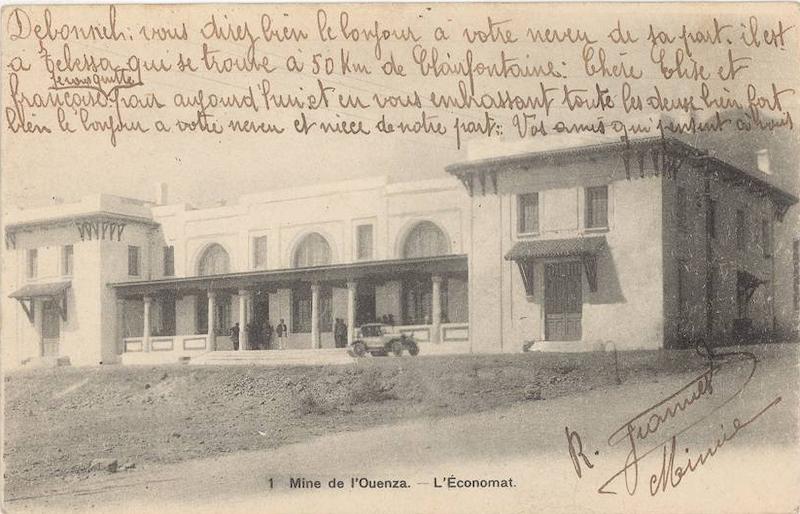 Debonneh: vous direz bien le bonjour à votre neveu de sa part. il est
à Tebessa qui se trouve à 50 Km de Clairfontaine: Chère Elise et
je vous quitte
françoise pour aujourd'hui et en vous embrassant toute les deux bien fort
bien le bonjour a votre neveu et nièce de notre part: Vos amis qui pensent à vous
R.
Mimie
1 Mine de l'Ouenza. — L'Économat.